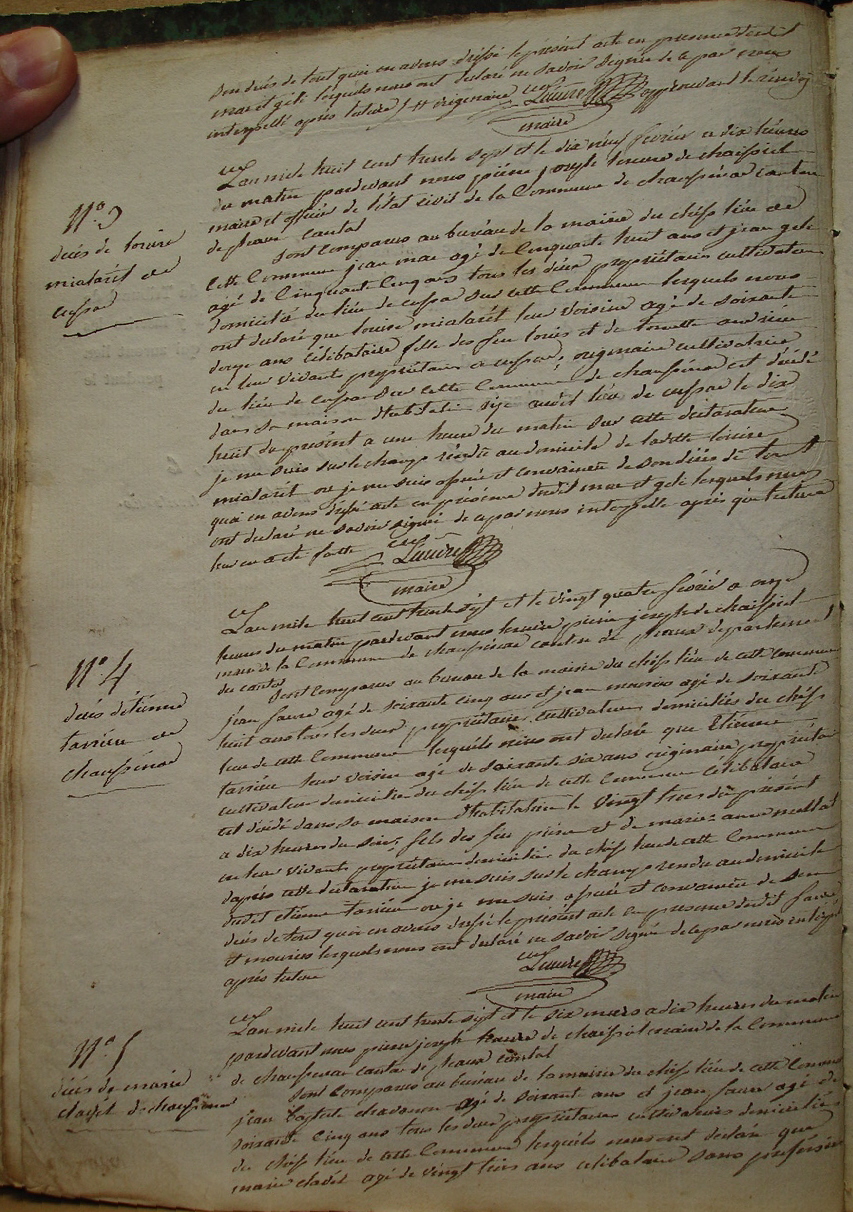 son décès de tout quoi en avons dressé le présent acte en presence dudit
mar et gely lesquels nous ont declaré ne savoir signer de ce par nous
interpellé après lecture originaire
approuvant le renvoi
maire
N° 3
décès de louise
mialaret de
cussac
L'an mile huit cent trente sept et le dix neuf fevrié a dix heures
du matin pardevant nous pierre joseph de chaissiol
maire et officier de l'état civil de la Commune de chaussenac canton
de pleaux cantal
sont comparus au bureau de la mairie du chef lieu de
cette Commune jean mar agé de Cinquante huit ans et jean gely
agé de Cinquant Cinq ans tous les deux propriétaire cultivateur
domicilié du lieu de cussac sur cette Commune lesquels nous
ont declaré que louise mialaret leur voisine agé de soixante
ans célibataire fille des feu louis et de
en leur vivant propriétaire a cussac originaire cultivatrice
du lieu de cussac sur cette Commune de chaussenac est décédé
dans sa maison d'habitation sise audit lieu de cussac le dix
huit du présent a une heure du matin sur cette déclaration
je me suis sur le champ rendu au domicile de ladite louise
mialaret ou je me suis assuré et convaincu de son décès de tout
quoi en avons dressé acte en présence dudit mar et gely lesquels nous
ont declaré ne savoir signer de ce par nous interpellé après que lecture
leur en a été faitte
maire
N° 4
décès d'étienne
tarrieu de
chaussenac
L'an mile huit cent trente sept et le vingt quatre fevrié a onze
heures du matin pardevant nous pierre joseph de chaissiol
maire de la Commune de chaussenac canton de pleaux departement
du cantal
sont comparus au bureau de la mairie du chef lieu de cette commune
jean faure agé de soixante cinq ans et jean mourios agé de soixante
huit ans tous les deux propriétaire cultivateurs domicilies du chef
lieu de cette Commune lesquels nous ont declaré que Etienne
tarrieu leur voisin agé de soixante six ans originaire propriétaire
cultivateur domicilié du chef lieu de cette Commune célibataire
est décédé dans sa maison d'habitation le vingt trois du présent
a dix heures du soir, fils des feu pierre et de marie
en leur vivants propriétaire domiciliés du chef lieu de cette Commune
d'après cette déclaration je me suis sur le champ rendu au domicile
dudit etienne tarrieu ou je me suis assuré et convaincu de son
décès de tout quoi en avons dressé le présent acte en presence dudit faure
et mourios lesquels nous ont declaré ne savoir signer de ce par nous interpellé
après lecture
maire
N° 5
décès de marie
clavet de chaussenac
L'an mile huit cent trente sept et le six mars a dix heures du matin
pardevant nous pierre joseph de chaissiol maire de la Commune
de chaussenac canton de pleaux cantal
sont comparus au bureau de la mairie du chef lieu de cette Commune
jean Baptiste chavanon agé de soixant ans et jean faure agé de
soixante cinq ans tous les deux propriétaires cultivateurs domicilies
du chef lieu de cette Commune lesquels nous ont declaré que
marie clavet agé de vingt trois ans celibataire sans profession